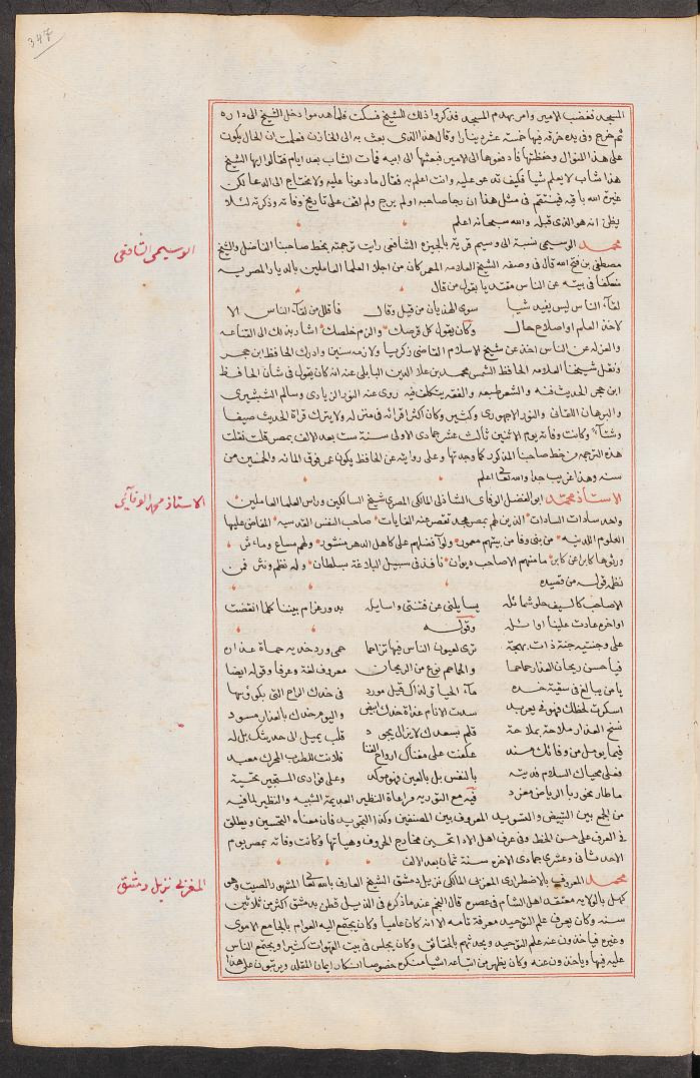 347
المسجد فغضب الامير وامر بهدم المسجد فذكروا ذلك للشيخ فسكت فلما هدموا دخل الشيخ الى داره
ثم خرج وفى يده خرقة فيها خمسة عشر دينارا وقال هذا الذى بعث به الى الخازن فعلمت ان الحال يكون
على هذا المنوال وحفظتها فادفعوها الى الامير فبعثها الى ابيه فمات الشاب بعد ايام فقالوا ايها الشيخ
هذا شاب لا يعلم شيا فكيف تدعو عليه وانت اعلم به فقال ما دعونا عليه ولا محتاج الى الدعا لكن
غيرة الله باقية فينتقم فى مثل هذا ان رجا صاحبه او لم يرج ولم اقف على تاريخ وفاته وذكرته لئلا
يظن انه هو الذى قبله والله سبحانه اعلم
محمد الوسيمى نسبة الى وسيم قرية بالجيزه الشافعى رايت ترجمته بخط صاحبنا الفاضل الشيخ
الوسيمى الشافعى
مصطفى بن فتح الله قال فى وصفه الشيخ العلامه المعمر كان من اجلا العلما العاملين بالديار المصريه
منعكفا فى بيته عن الناس مقتديا بقول من قال
لقآء الناس ليس يفيد شيا سوى الهذيان من قيل وقال فاقلل من لقآء الناس الا
لاخذ العلم او اصلاح حال وكان يقول كل قرصك والزم خلصك اشار بذلك الى القناعه
والعزله عن الناس اخذ عن شيخ الاسلام القاضى زكريا ولازمه سنين وادرك الحافظ ابن حجر
ونقل شيخنا العلامه الحافظ الشمس محمد بن علا الدين البابلى عنه انه كان يقول فى شان الحافظ
ابن حجر الحديث فنه والشعر طبعه والفقه يتكلف فيه روى عنه النور الزيادى وسالم الشبشيرى
والبرهان اللقانى والنور الاجهورى وكثيرين وكان اكثر اقرائه فى منزله ولا يترك قراة الحديث صيفا
وشتآء وكانت وفاته يوم الاثنين ثالث عشر جمادى الاولى سنة ست بعد الالف بمصر قلت نقلت
هذه الترجمه من خط صاحبنا المذكور كما وجدتها وعلى روايته عن الحافظ يكون عمره فوق المائه والخمسين من
سنه وهذا غريب جدا والله تعالى اعلم
الاستاذ محمد ابو الفضل الوفاى الشاذلى المالكى المصرى شيخ السالكين وراس العلما العاملين
الاستاذ محمد الوفائى
واحد سادات السادات الذين لهم بمصر مجد تقصر عنه الغايات صاحب النفس القدسيه المفاض عليها
العلوم اللدنيه من بنى وفا من بيتهم معمور ولوآ فضلهم على كاهل الدهر منشور ولهم مساع ومآثر
ورثوها كابرا عن كابر ما منهم الا صاحب ديوان نافذ فى سبيل البلاغة بسلطان وله نظم ونثر فمن
نظمه قوله من قصيده
الا صاحب كالسيف حلو شمائله يسايلنى عن فتنتى واسايله بدور غرام بيننا كلما انقضت
اواخره عادت علينا اوائله وقوله
على وجنتيه جنة ذات بهجة ترى لعيون الناس فيها تزاحما حمى ورد خديه حماة عذاره
فيا حسن ريحان العذار حماحما والحماحم نوع من الريحان معروف لغة وعرفا وقوله ايضا
يا من يبالغ فى سقية خده مآء الحياة فلذاك قيل مورد فى خدك الراح التى
اسكرت لحظك فهو فى يعربد سدت الانام غداة خدك ابيض واليوم خدك بالعذار مسود
نسخ العذار ملاحة بملاحة قلبى يميل الى حديثك بل له
فيما يومل من وفائك مسند عكفت على مغناك ارواح
فعلى محياك السلام فديته بالنفس بل بالعين فهو موكد وعلى فوادى المستجير تحية
ما طار بخور با الرياض مغرد فيه مع التوريه مراعاة النظير العديمة الشبيه والنظير لما فيه
من الجمع بين التبييض والتسويد المعروف بين المصنفين وكذا التجويد فان معناه التحسين ويطلق
فى العرف على حسن الخط وفى عرف اهل الاداء تحسين مخارج الحروف وهياتها وكانت وفاته بمصر يوم
الاحد ثانى وعشرى جمادى الاخره سنة ثمان بعد الالف
محمد المعروف بالاضطرارى المغربى المالكى نزيل دمشق الشيخ العارف بالله تعالى المشهور الصيت وهى
المغربى نزيل دمشق
كهل بالولايه معتقد اهل الشام فى عصره قال النجم عند ما ذكره فى الذيل قطن بدمشق اكثر من ثلاثين
سنه وكان يعرف علم التوحيد معرفة تامه الا انه كان عاميا وكان يجتمع اليه العوام بالجامع الاموى
وغيره فياخذون عنه علم التوحيد ويحدثهم بالحقائق وكان يجلس فى بيت القهوات كثيرا ويجتمع الناس
عليه فيها وياخذون عنه وكان يظهر من اتباعه اشيا منكره خصوصا انكار ايمان المقلد ويرتبون على هذا